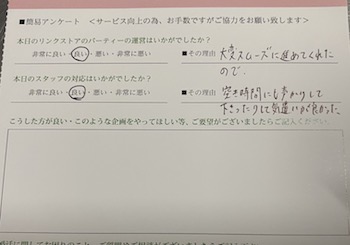 ■簡易アンケート ＜サービス向上の為、お手数ですがご協力をお願い致します＞
本日のリンクストアのパーティーの運営はいかがでしたか？
非常に良い・良い・悪い・非常に悪い ■その理由 大変スムーズに進めてくれた
ので.
本日のスタッフの対応はいかがでしたか？
非常に良い・良い・悪い・非常に悪い ■その理由 空き時間にも
下さったりして気遣いが良かった.
こうした方が良い・このような企画をやってほしい等、ご要望がございましたらご記入ください。